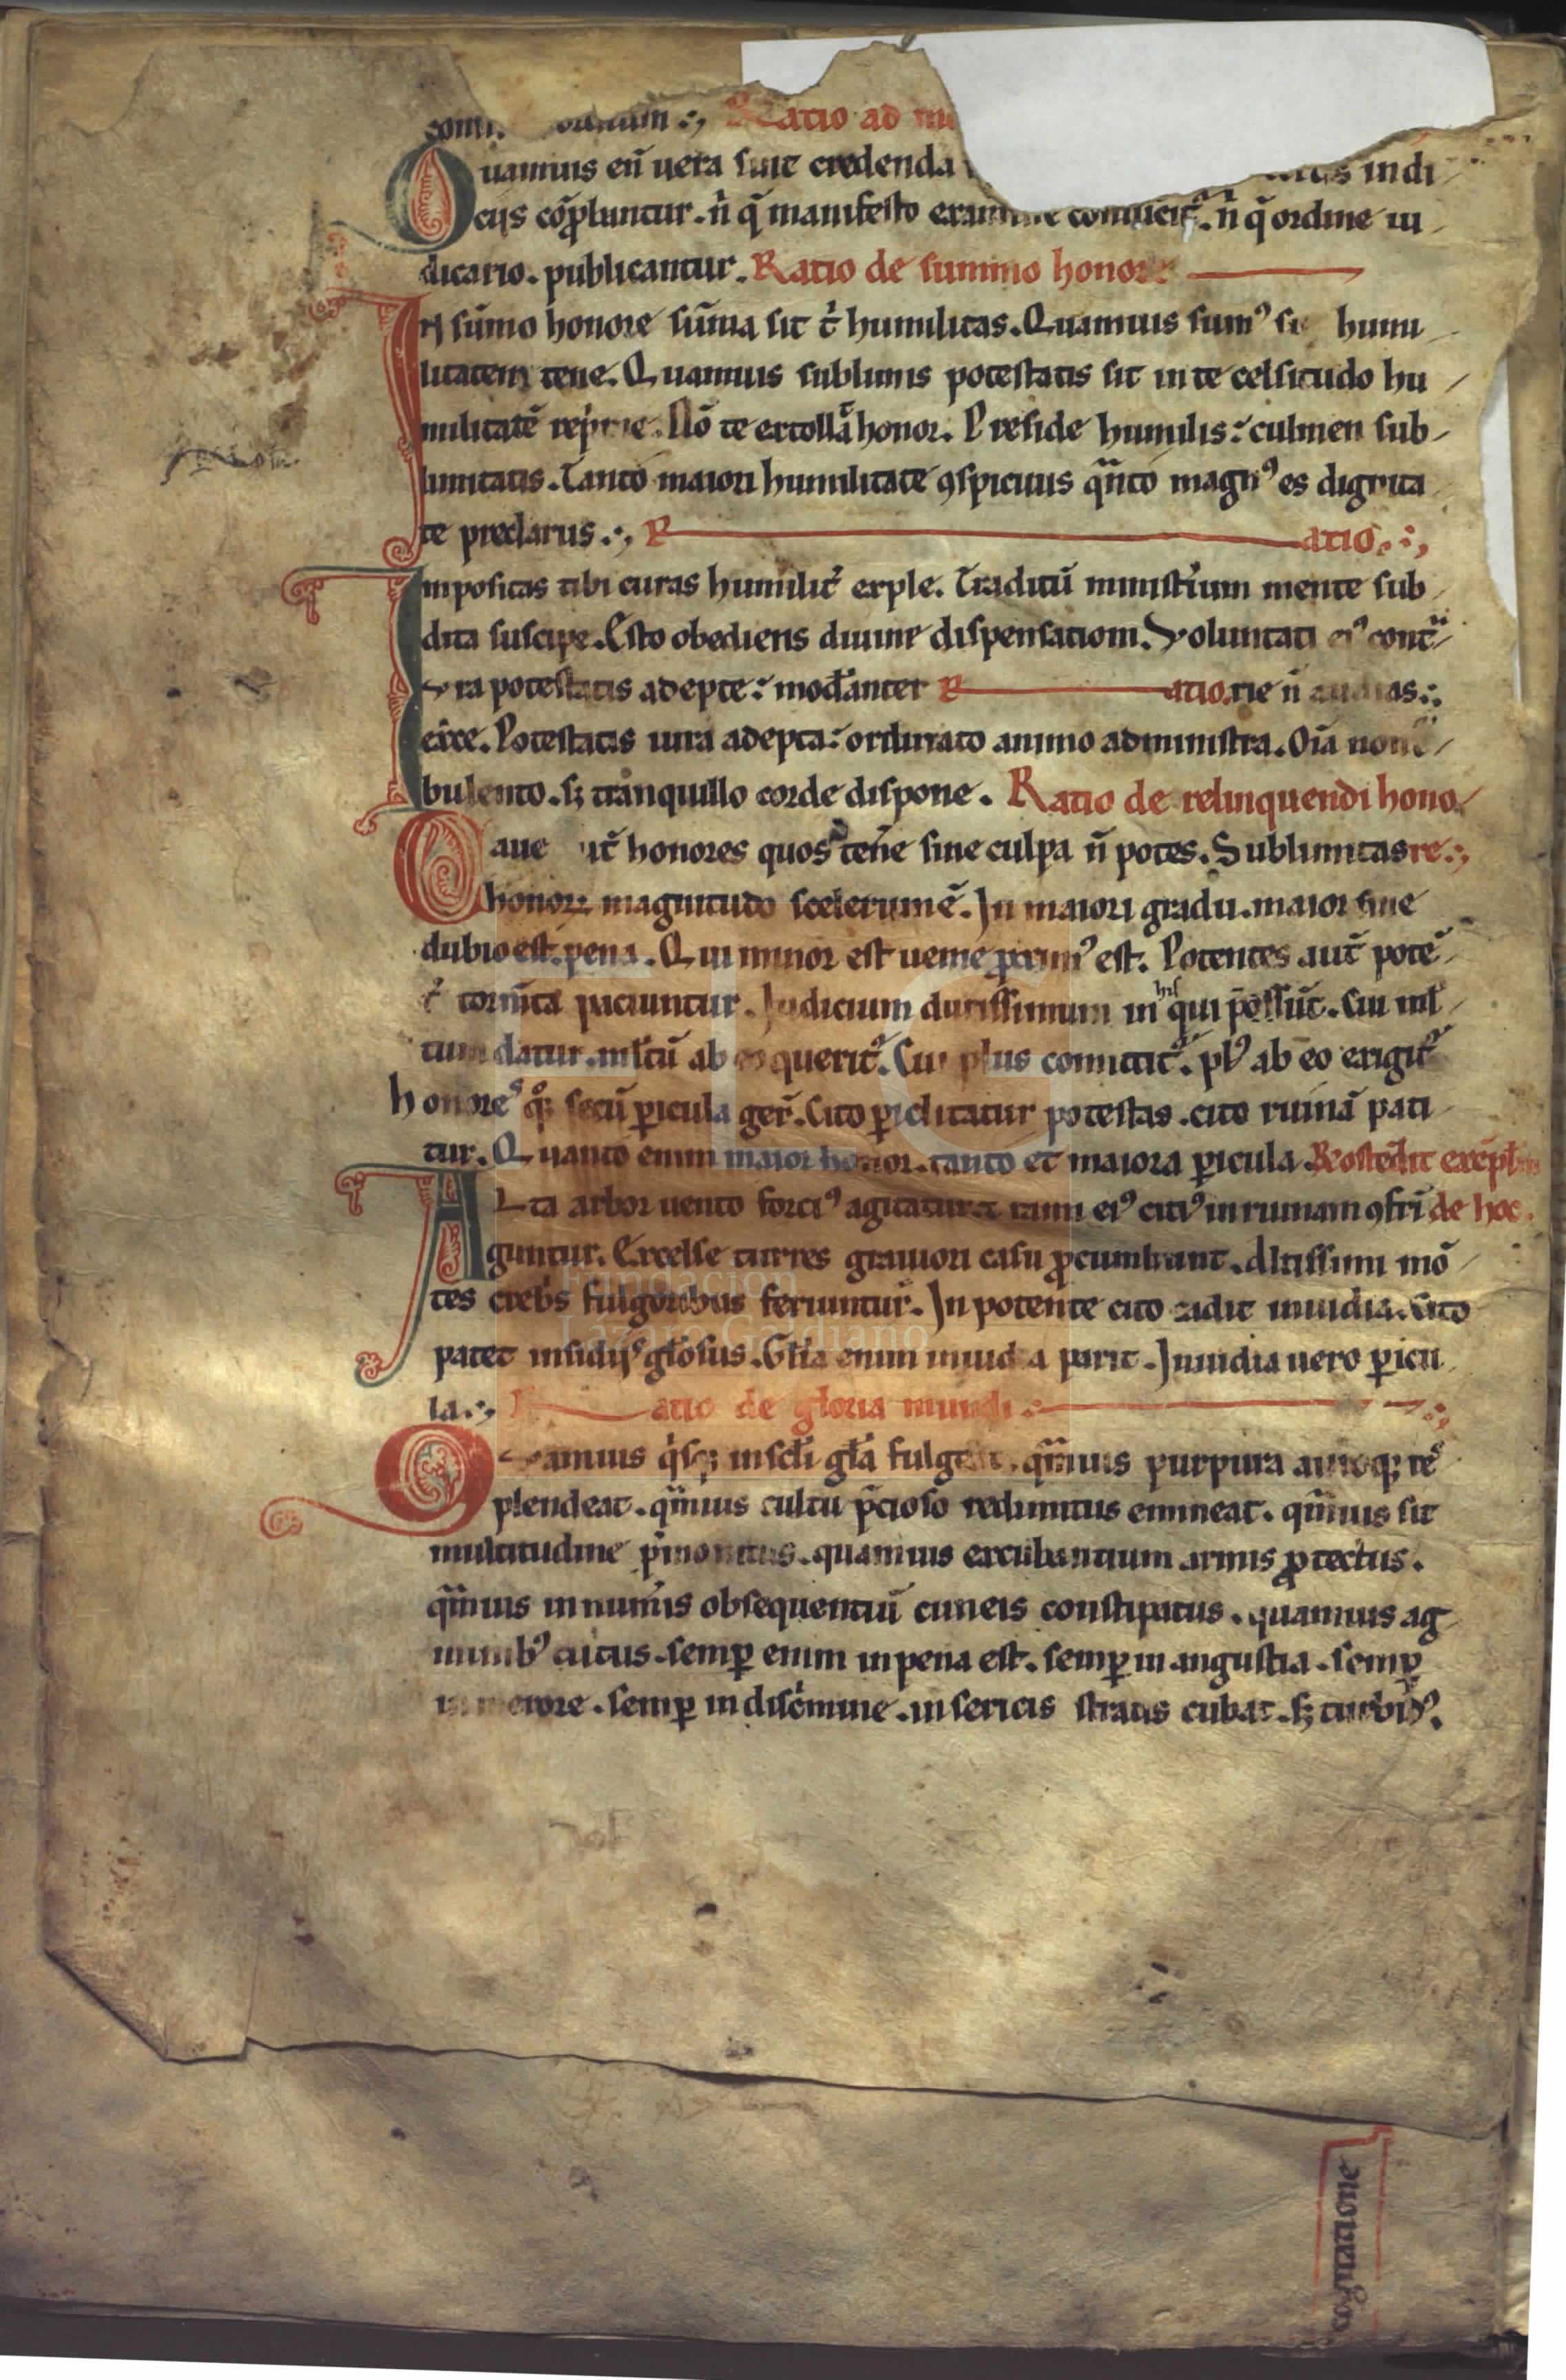 Ratio ad
Quamuis eñ uera sint credenda indi
cijs cõprobantur. ñ q̃ manifesto examine conuicit᷑. ñ q̃ ordine iu
dicario. publicantur. Ratio de summo honore
In sũmo honore sũma sit t̉ humilitas. Quamuis sum᷒ humi
litatem tene. Quamuis sublimis potestatis sit in te celsitudo hu
militatẽ Nõ te extollã honor. Preside humilis: culmen sub
limitatis. Tanto maiori humilitate ꝯspicuus qñto magn᷒ es dignita
te preclarus. R atio
Inpositas tibi curas humilit̉ exple. Traditũ minist̉ium mente sub
dita suscipe. Esto obediens diuine dispensationi. Voluntati ei᷒ cont̃
ra potestatis adepte: mod̉anter R atio. ne ñ
exẽce. Potestatis iura adepta: ordinato animo administra. Oĩa non
bulento. sꝫ tranquillo corde dispone. Ratio de relinquendi hono
Caue honores quos teñe sine culpa ñ potes. Sublimitas re
honorꝫ magnitudo scelerum ẽ. In maiori gradu. maior sine
dubio est. pena. Qui minor est uenie ꝓxim᷒ est. Potentes aut̃ potẽ
t̉ torm̃ta paciuntur. Judicium durissimum in his qui p̃ssũt. Cui ml̃
tum datur. ml̃tũ ab eo querit᷑. Cui plus committit᷑. pl᷒ ab eo exigit᷑
honores q̊ꝫ secũ ꝑicula ger̃. Cito ꝑiclitatur potestas. cito ruinã pati
tur. Quanto enim maior honor. tanto et maiora ꝑicula. R ostẽdit exẽpl̃
Alta arbor uento forci᷒ agitatur et rami ei᷒ citi᷒ in ruinam ꝯfrĩ de hoc.
guntur. Excelse turres grauiori casu ꝓcumbunt. Altissimi mõ
tes crebs̉ fulgoribus feriuntur. In potente cito cadit inuidia. Cito
patet insidijs gl̃osus. Gl̃ia enim inuidia parit. Inuidia uero ꝑicu
la. Ratio de gloria mundi
Quamuis q̉sqꝫ in scl̃i gl̃a fulgeat. qm̃uis purpura auroqꝫ res
plendeat. qm̃uis cultu p̃cioso redimitus emineat. qm̃uis sit
multitudine p̉monitus. quamuis excubantium armis ꝓtectus.
qm̃uis innum̉is obsequentiũ cuneis constipatus. quamuis ag
minib᷒ cuitus. semꝑ enim in pena est. semꝑ in angustia. semꝑ
in merore. semꝑ in discrimine. in sericis stratis cubat. sꝫ turbid᷒.
cognatione
Fundación
Lázaro Galdiano
FLG